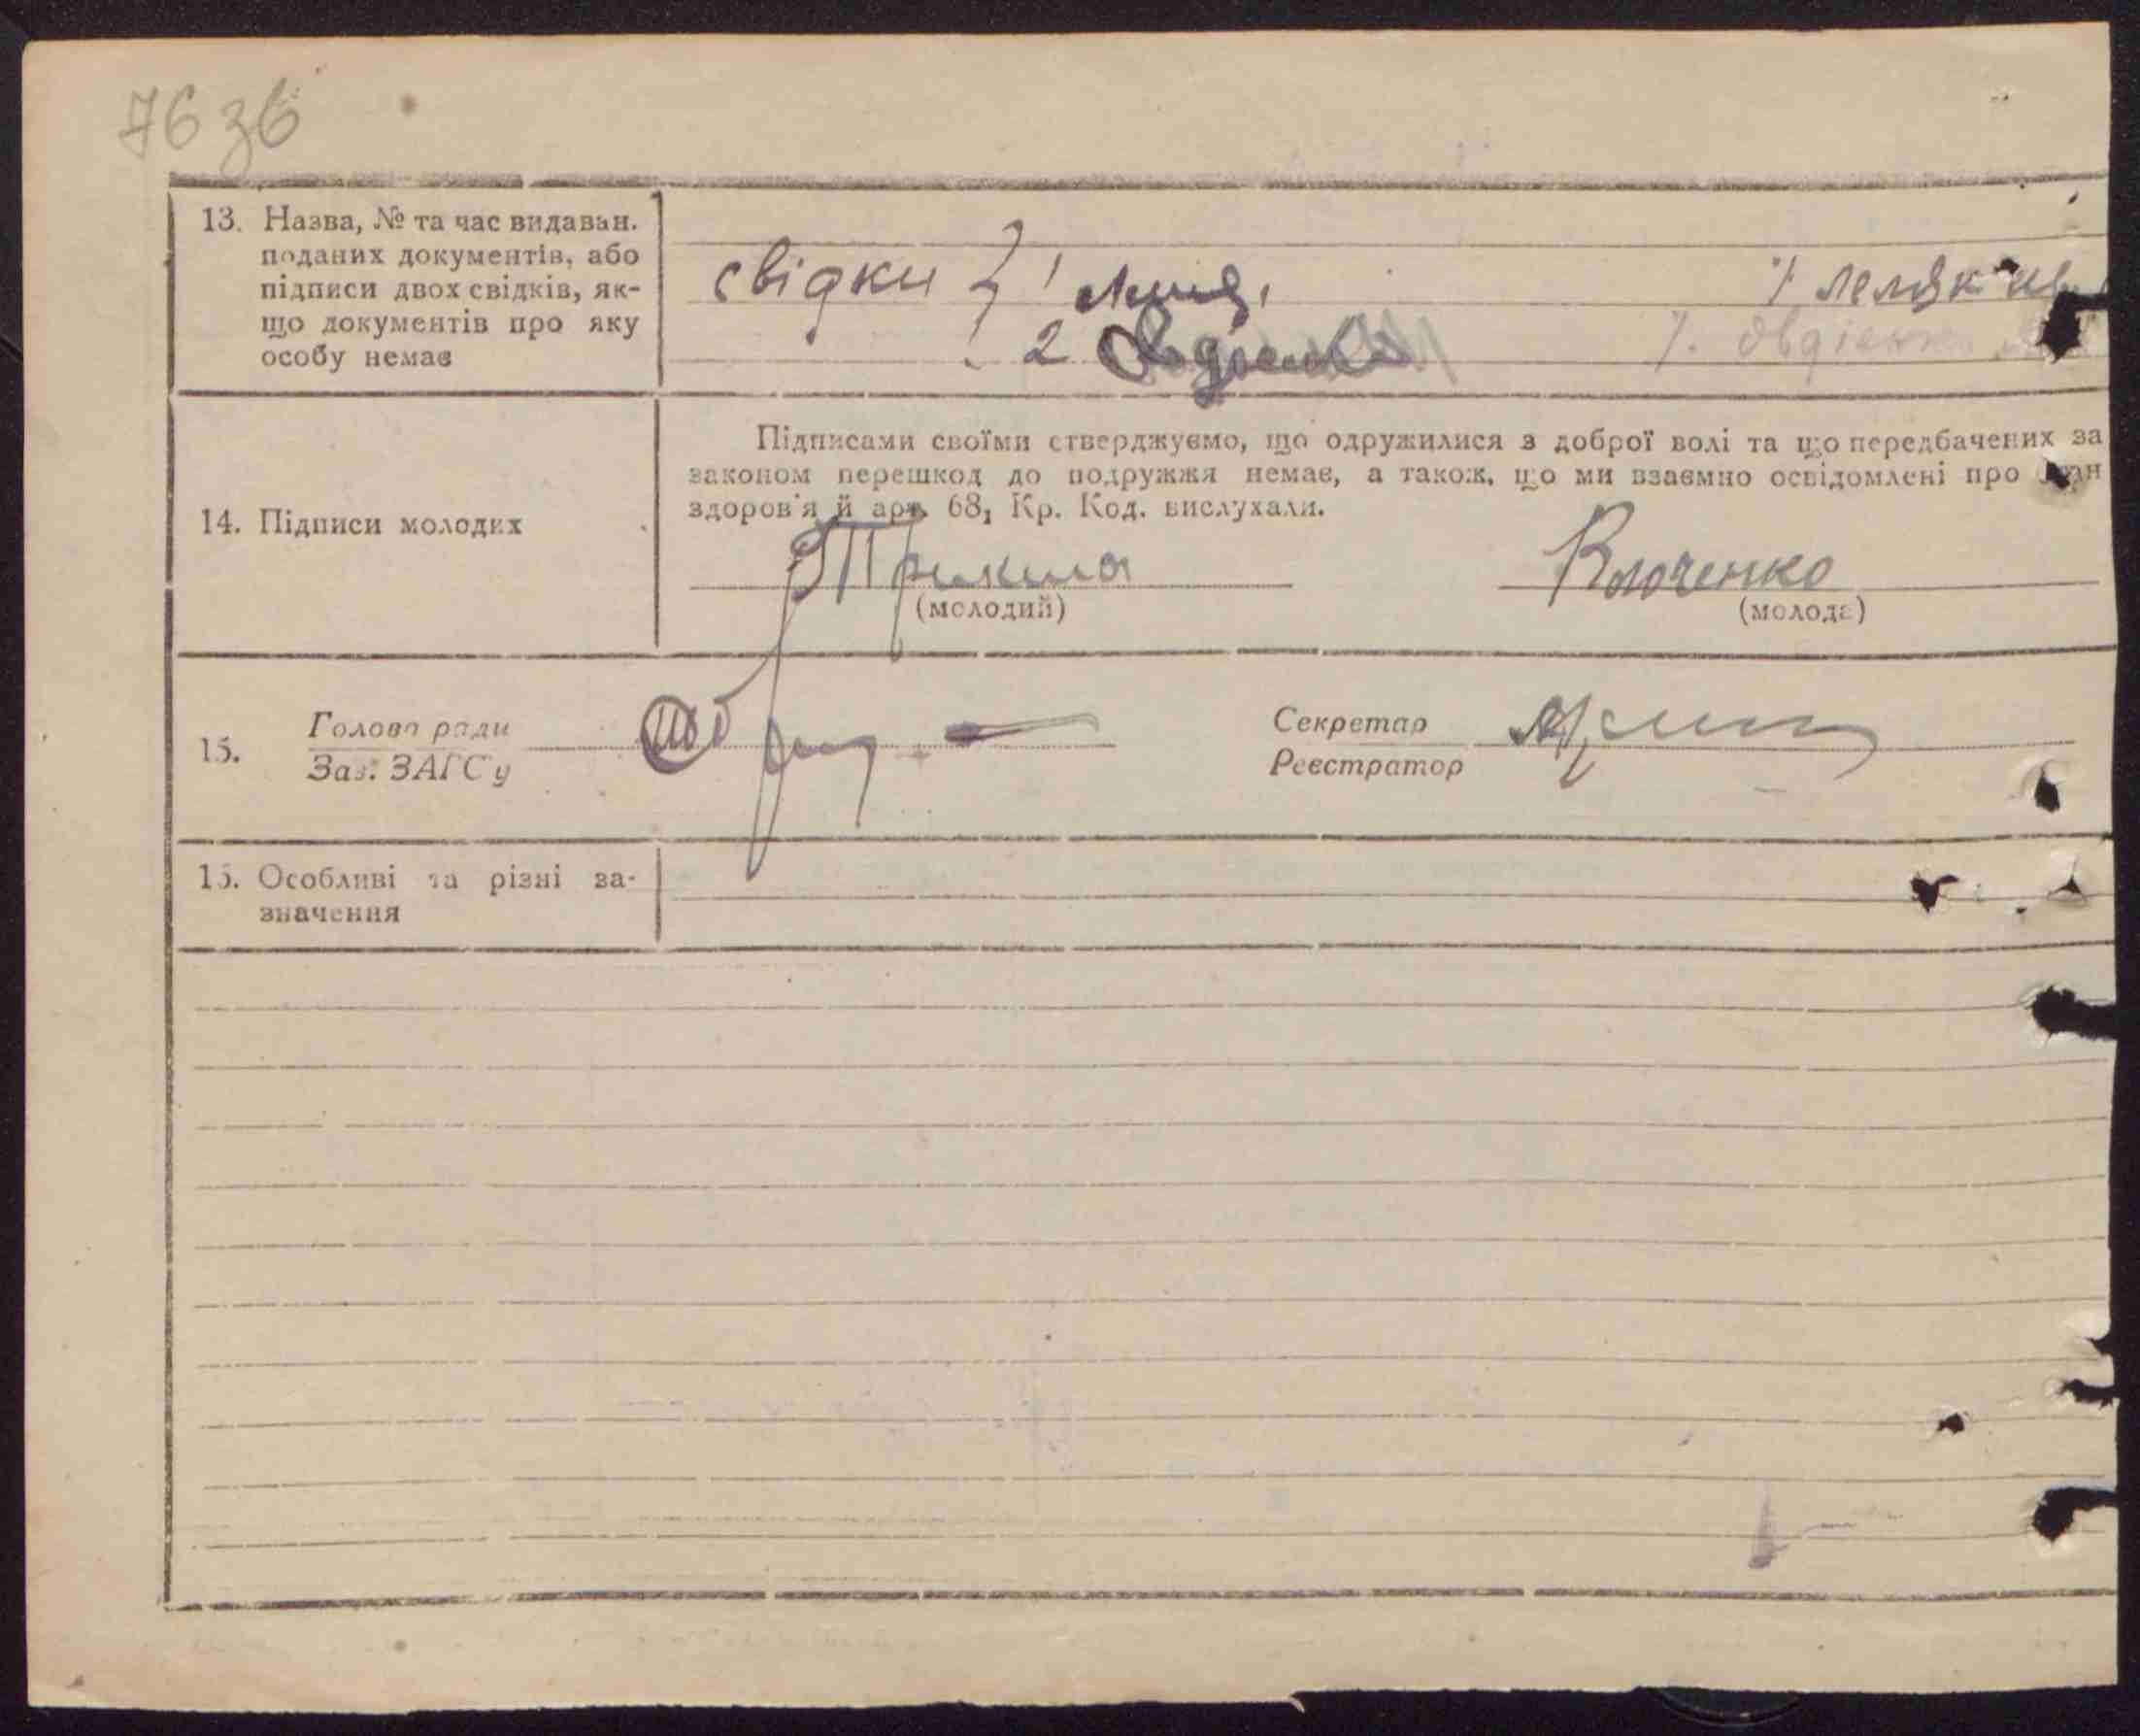 76 зв
13. Назва, № та час видаван.
поданих документів, або
підписи двох свідків, як-
що документів про яку
особу немає
свідки 1
2 Овдієнко
1. Овдієнко
Підписами своїми стверджуємо, що одружилися з доброї волі та що передбачених за
законом перешкод до подружжя немає, а також, що ми взаємно освідомлені про стан
здоров'я й арт. 68, Кр. Код. вислухали.
14. Підписи молодих
Ключенко
(молодий) (молода)
15. Голова ради
Зав. ЗАГС'у
Секретар
Реєстратор
15. Особливі та різні за-
значення